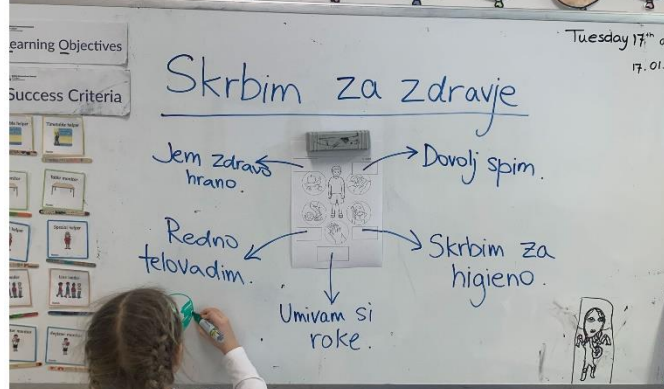 earning Objectives
Success Criteria
Tuesday 17th
17.01.
Skrbim za zdravje
Jem zdravo
hrano.
Dovolj spim.
Redno
telovadim.
Skrbim za
higieno.
Umivam si
roke.